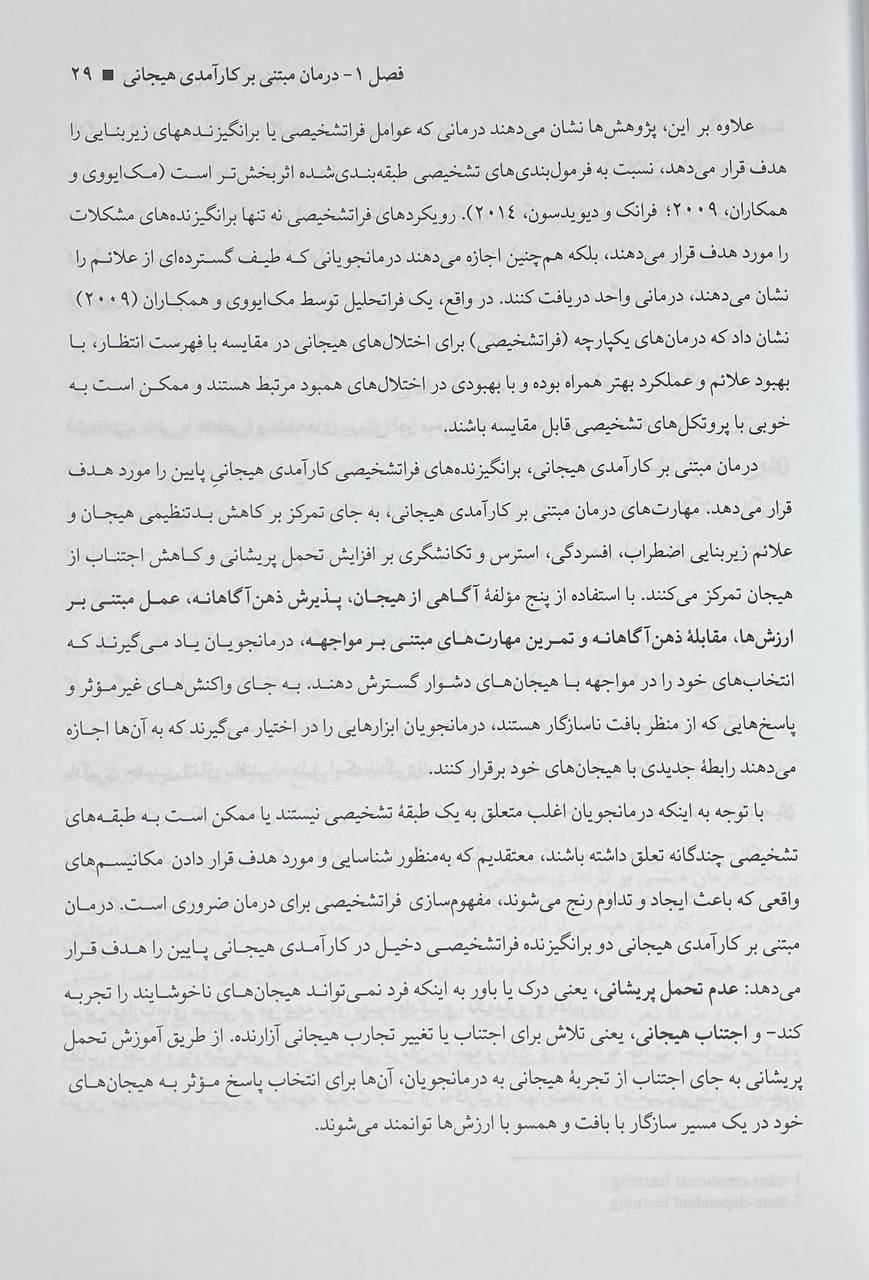 فصل ۱- درمان مبتنی بر کارآمدی هیجانی ■ ۲۹
علاوه بر این، پژوهش‌ها نشان می‌دهند درمانی که عوامل فراتشخیصی یا برانگیزنده‎های زیربنایی را
هدف قرار می‌دهد، نسبت به فرمول‌بندی‌های تشخیصی طبقه‌بندی‌شده اثربخش‌تر است (مک‌ایووی و
همکاران، ۲۰۰۹؛ فرانک و دیویدسون، ۲۰۱۴). رویکردهای فراتشخیصی نه تنها برانگیزنده‌های مشکلات
را مورد هدف قرار می‌دهند، بلکه هم‌چنین اجازه می‌دهند درمانجویانی که طیف گسترده‌ای از علائم را
نشان می‌دهند، درمانی واحد دریافت کنند. در واقع، یک فراتحلیل توسط مک‌ایووی و همکاران (۲۰۰۹)
نشان داد که درمان‌های یکپارچه (فراتشخیصی) برای اختلال‌های هیجانی در مقایسه با فهرست انتظار، با
بهبود علائم و عملکرد بهتر همراه بوده و با بهبودی در اختلال‌های همبود مرتبط هستند و ممکن است به
خوبی با پروتکل‌های تشخیصی قابل مقایسه باشند.
درمان مبتنی بر کارآمدی هیجانی، برانگیزنده‌های فراتشخیصی کارآمدی هیجانیِ پایین را مورد هدف
قرار می‌دهد. مهارت‌های درمان مبتنی بر کارآمدی هیجانی، به جای تمرکز بر کاهش بدتنظیمی هیجان و
علائم زیربنایی اضطراب، افسردگی، استرس و تکانشگری بر افزایش تحمل پریشانی و کاهش اجتناب از
هیجان تمرکز می‌کنند. با استفاده از پنج مؤلفۀ آگاهی از هیجان، پذیرش ذهن‌آگاهانه، عمل مبتنی بر
ارزش‌ها، مقابلۀ ذهن‌آگاهانه و تمرین مهارت‌های مبتنی بر مواجهه، درمانجویان یاد می‌گیرند که
انتخاب‌های خود را در مواجهه با هیجان‌های دشوار گسترش دهند. به جای واکنش‌های غیرمؤثر و
پاسخ‌هایی که از منظر بافت ناسازگار هستند، درمانجویان ابزارهایی را در اختیار می‌گیرند که به آن‌ها اجازه
می‌دهند رابطۀ جدیدی با هیجان‌های خود برقرار کنند.
با توجه به اینکه درمانجویان اغلب متعلق به یک طبقۀ تشخیصی نیستند یا ممکن است به طبقه‌های
تشخیصی چندگانه تعلق داشته باشند، معتقدیم که به‌منظور شناسایی و مورد هدف قرار دادن مکانیسم‌های
واقعی که باعث ایجاد و تداوم رنج می‌شوند، مفهوم‌سازی فراتشخیصی برای درمان ضروری است. درمان
مبتنی بر کارآمدی هیجانی دو برانگیزنده فراتشخیصی دخیل در کارآمدی هیجانی پایین را هدف قرار
می‌دهد: عدم تحمل پریشانی، یعنی درک یا باور به اینکه فرد نمی‌تواند هیجان‌های ناخوشایند را تجربه
کند- و اجتناب هیجانی، یعنی تلاش برای اجتناب یا تغییر تجارب هیجانی آزارنده. از طریق آموزش تحمل
پریشانی به جای اجتناب از تجربۀ هیجانی به درمانجویان، آن‌ها برای انتخاب پاسخ مؤثر به هیجان‌های
خود در یک مسیر سازگار با بافت و همسو با ارزش‌ها توانمند می‌شوند.